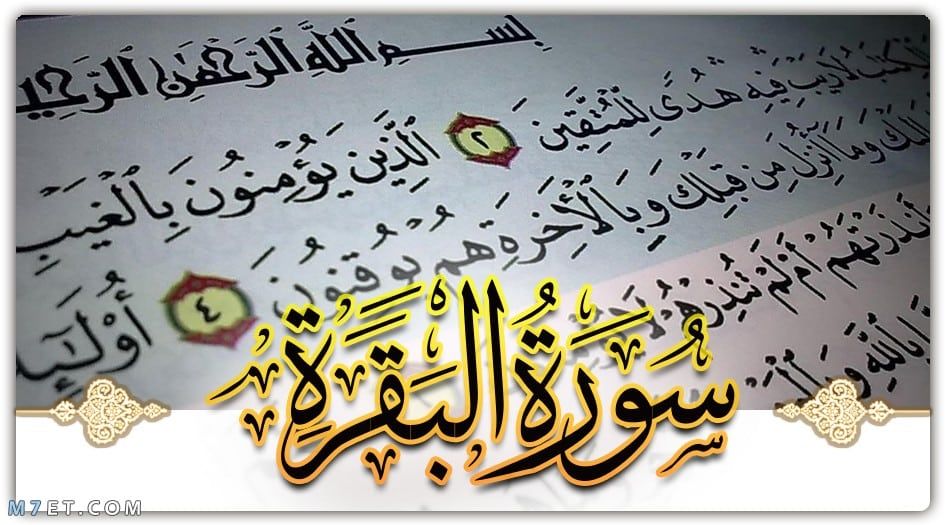 بِسْمِ ٱللَّهِ ٱلرَّحْمَٰنِ ٱلرَّحِيـ
ٱلْكِتَٰبُ لَا رَيْبَ فِيهِ هُدًى لِّلْمُتَّقِينَ ٢ ٱلَّذِينَ يُؤْمِنُونَ بِٱلْغَيْبِ
وَمَآ أُنزِلَ مِن قَبْلِكَ وَبِٱلْأَخِرَةِ هُمْ يُوقِنُونَ ٤ أُوْلَٰٓئِـ
أَنذَرْتَهُمْ أَمْ لَمْ تُنذِرْهُمْ لَا
بِٱللَّهِ
سُورَةُ الْبَقَرَةِ
M7ET.COM